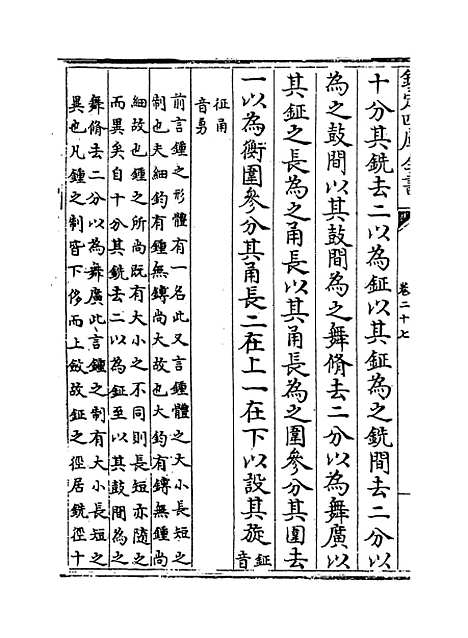 欽定四庫全書
卷二十七
十分其銑去二以為鉦以其鉦為之銑間去二分以
為之鼓間以其鼓間為之舞脩去二分以為舞廣以
其鉦之長為之甬長以其甬長為之圍參分其圍去
一以為衡圍參分其甬長二在上一在下以設其旋鉦音
征甬
音勇
前言鍾之形體有一名此又言鍾體之大小長短之
制也夫細鈞有鍾無鎛尚大故也大鈞有鎛無鍾尚
細故也鍾之所尚既有大小之不同則長短亦隨之
而異矣自十分其銑去二以為鉦至以其鼓間為之
舞脩去二分以為舞廣此言鍾之制有大小長短之
異也凡鍾之制皆下侈而上斂故鉦之徑居銑徑十